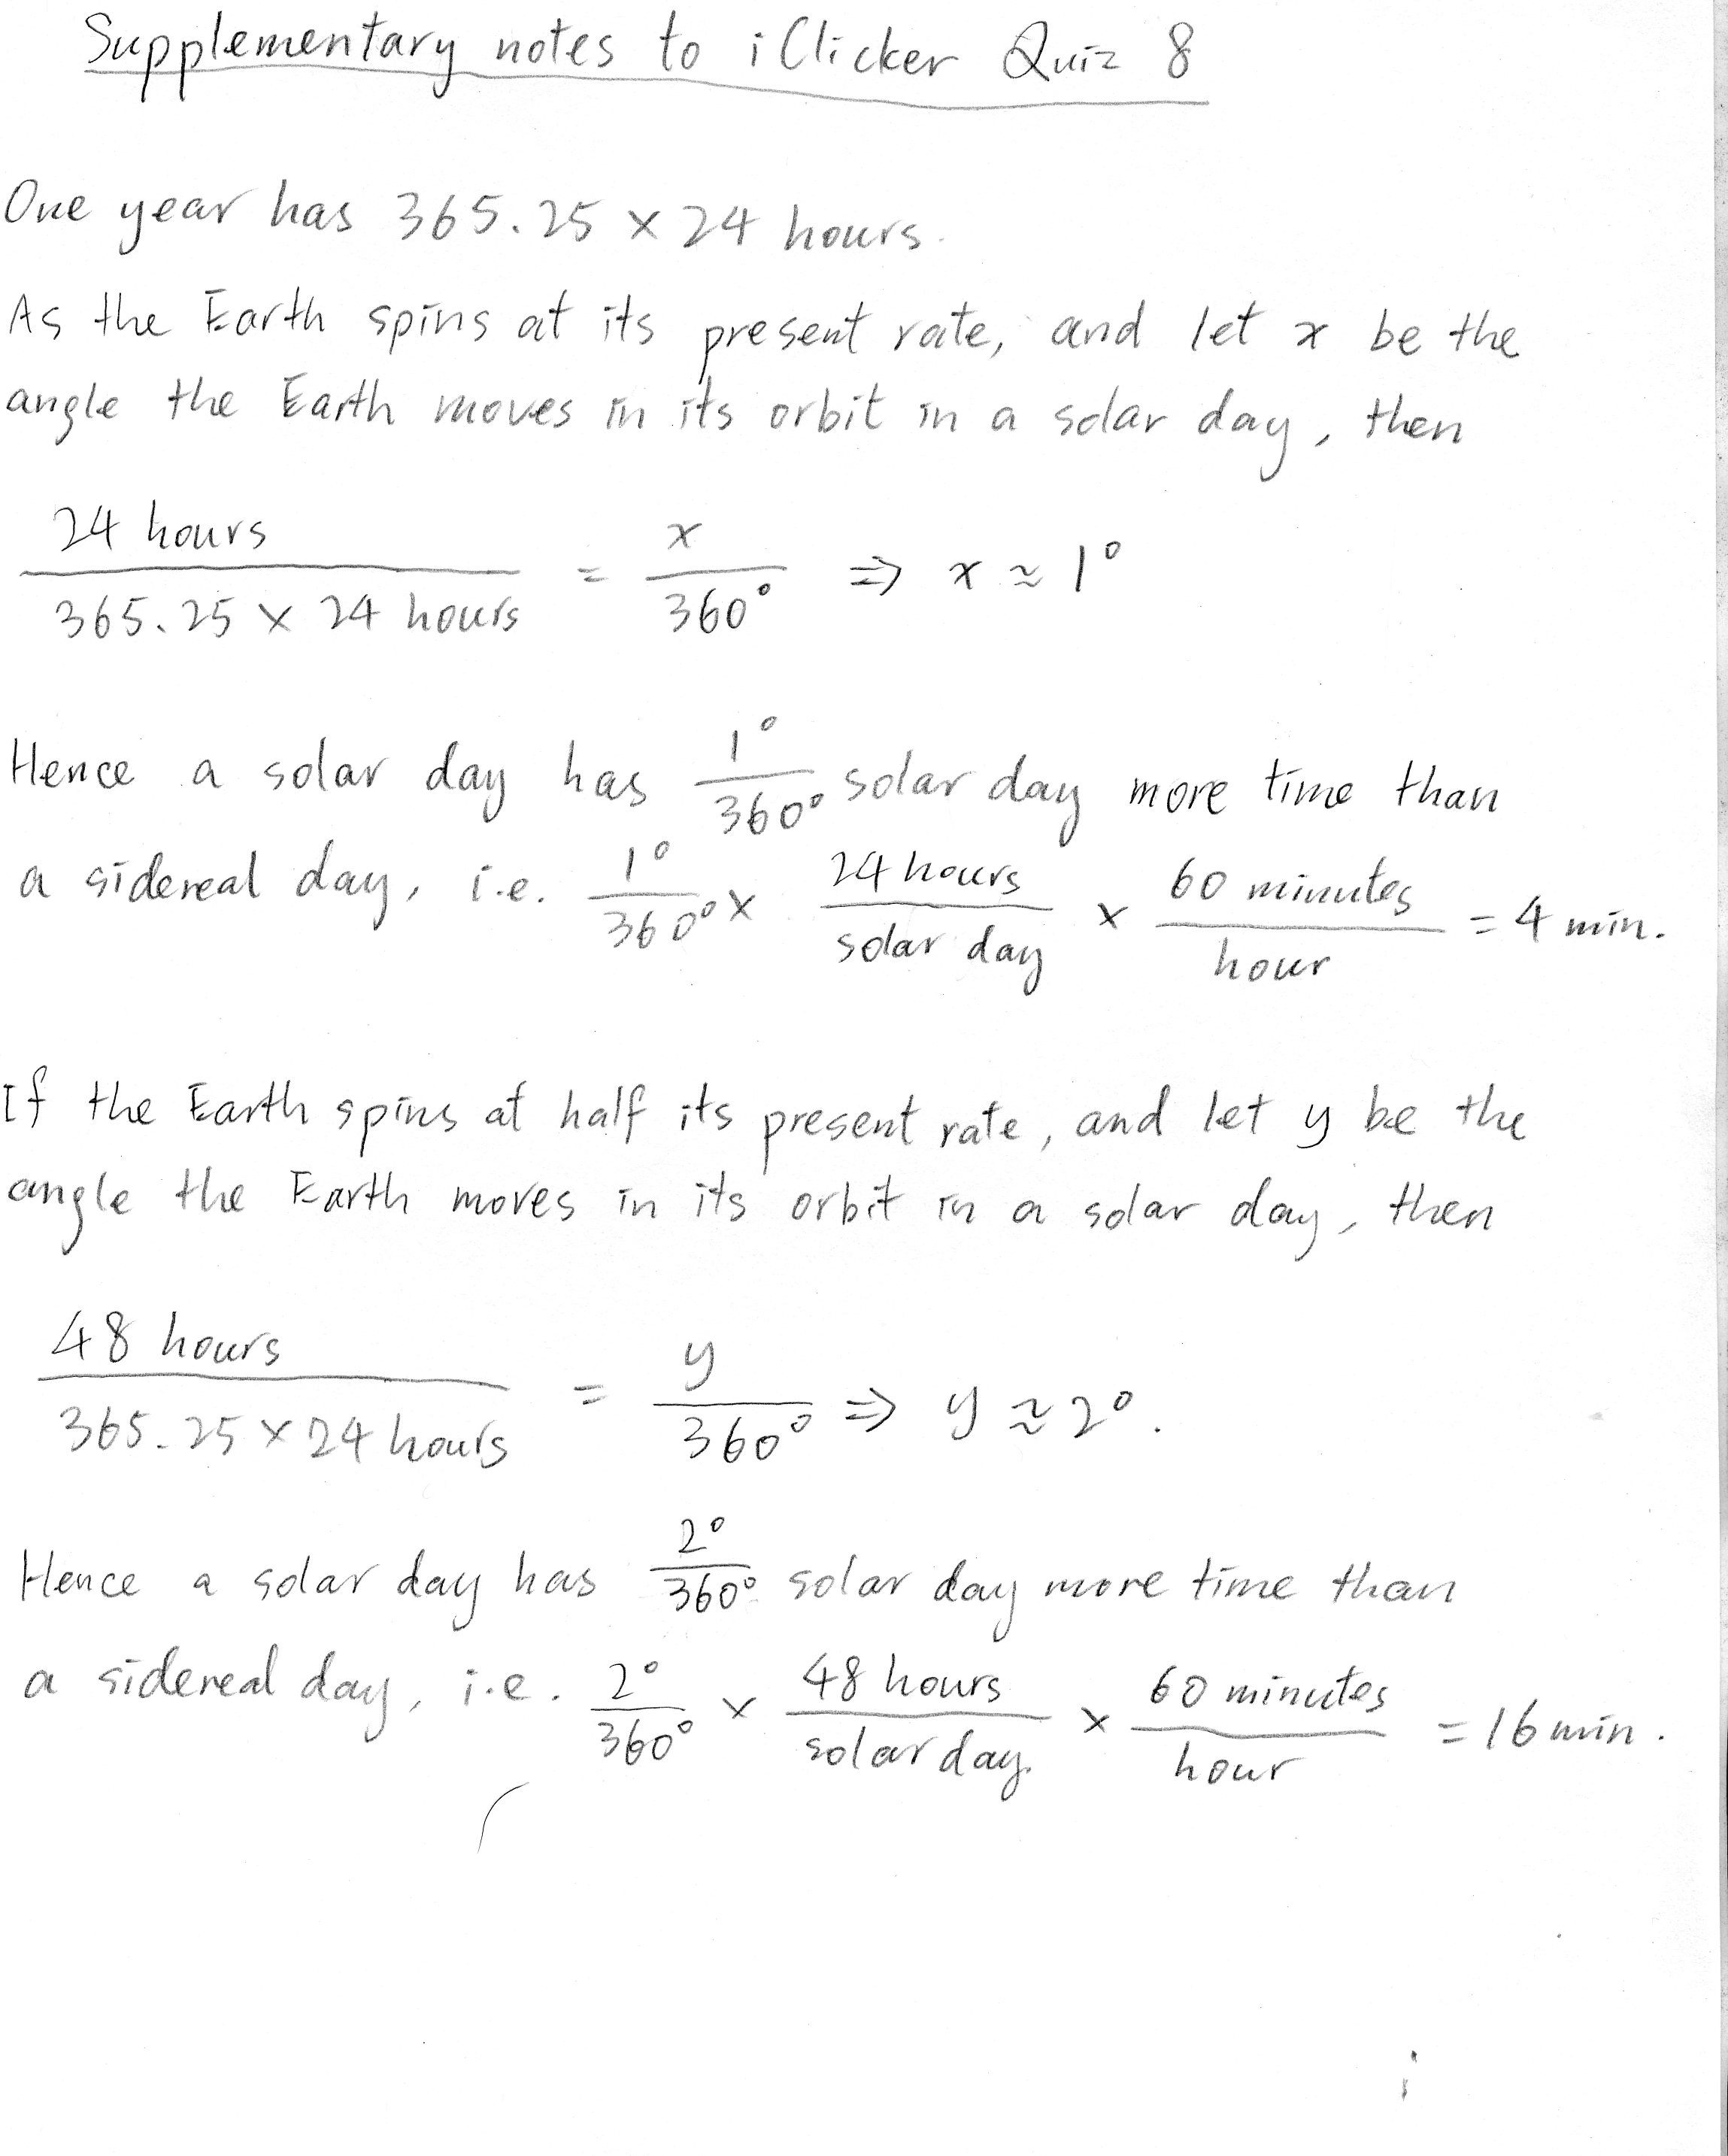 Supplementary notes to iClicker Quiz 8
One year has 365.25 × 24 hours.
As the Earth spins at its present rate, and let x be the
angle the Earth moves in its orbit in a solar day, then
24 hours / 365.25 × 24 hours = x / 360° ⇒ x ≈ 1°
Hence a solar day has 1° / 360° solar day more time than
a sidereal day, i.e. 1° / 360° × 24 hours / solar day × 60 minutes / hour = 4 min.
If the Earth spins at half its present rate, and let y be the
angle the Earth moves in its orbit in a solar day, then
48 hours / 365.25 × 24 hours = y / 360° ⇒ y ≈ 2°.
Hence a solar day has 2° / 360° solar day more time than
a sidereal day, i.e. 2° / 360° × 48 hours / solar day. × 60 minutes / hour = 16 min.